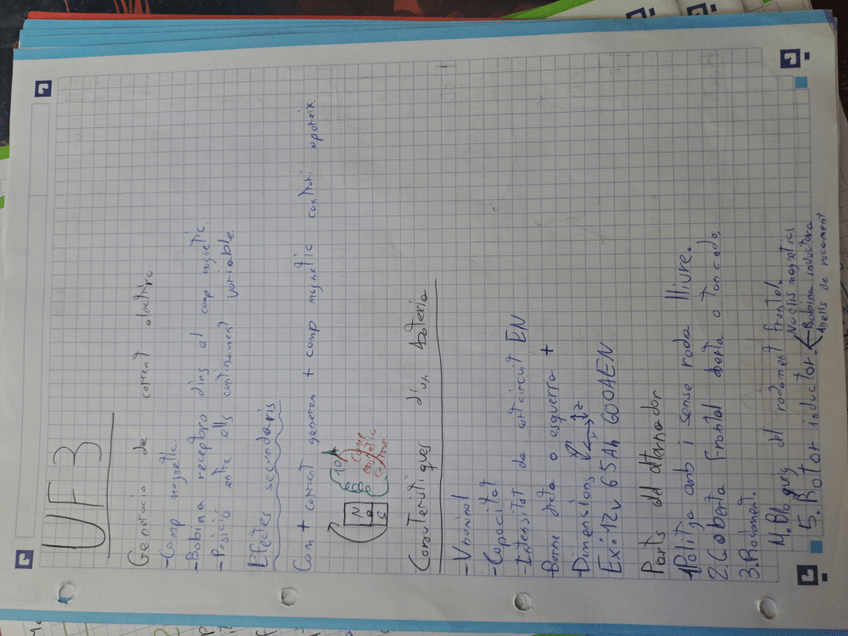 UF3
Generacio de corrent electric
-Camp magnetic.
-Bobina receptora dins el camp magnetic
-Posició entre ells continuament variable
Efectes secundaris
Com + corrent generem + camp magnetic contrari apareix
N
S
camp
magnetic
Característiques d'un bateria
-Vnominal
-Capacitat
-Intensitat de curtcircuit EN
-Borne dreta o esquerra +
-Dimensions
Ex: 12v 65Ah 600AEN
Parts del alternador
1Politja amb i sense roda lliure.
2Coberta frontal oberta o tancada.
3.Rodament.
4.Bloqueig del rodament frontal.
5.Rotor inductor.
Nuclis magnetics
Bobina inductora
Anells de rocament